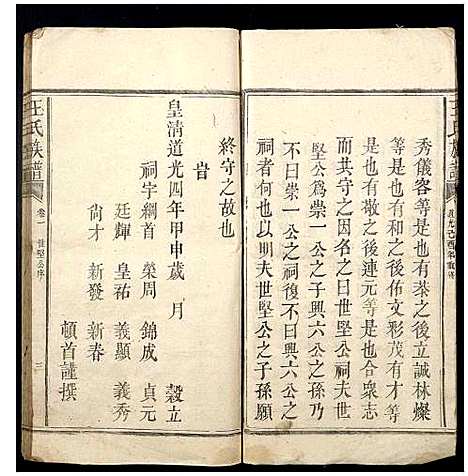 王氏族譜
秀儀客等是也有茶之後立誠林燦
等是也有和之後佑文彩茂有才等
是也有達之後連元等是也合眾志
而共守之因名之曰世堅公祠夫世
堅公爲崇一公之子興六公之孫乃
不曰崇一公之祠復不曰興六公之
祠者何也以明夫世堅公之子孫願
終守之故也
旹
皇清道光四年甲申歲 月 穀立
祠宇綱首 榮周 錦成 貞元
廷輝 皇祐 義顯 義秀
尙才 新發 新春
頓首謹撰
王氏族譜
卷一
世堅公序
三